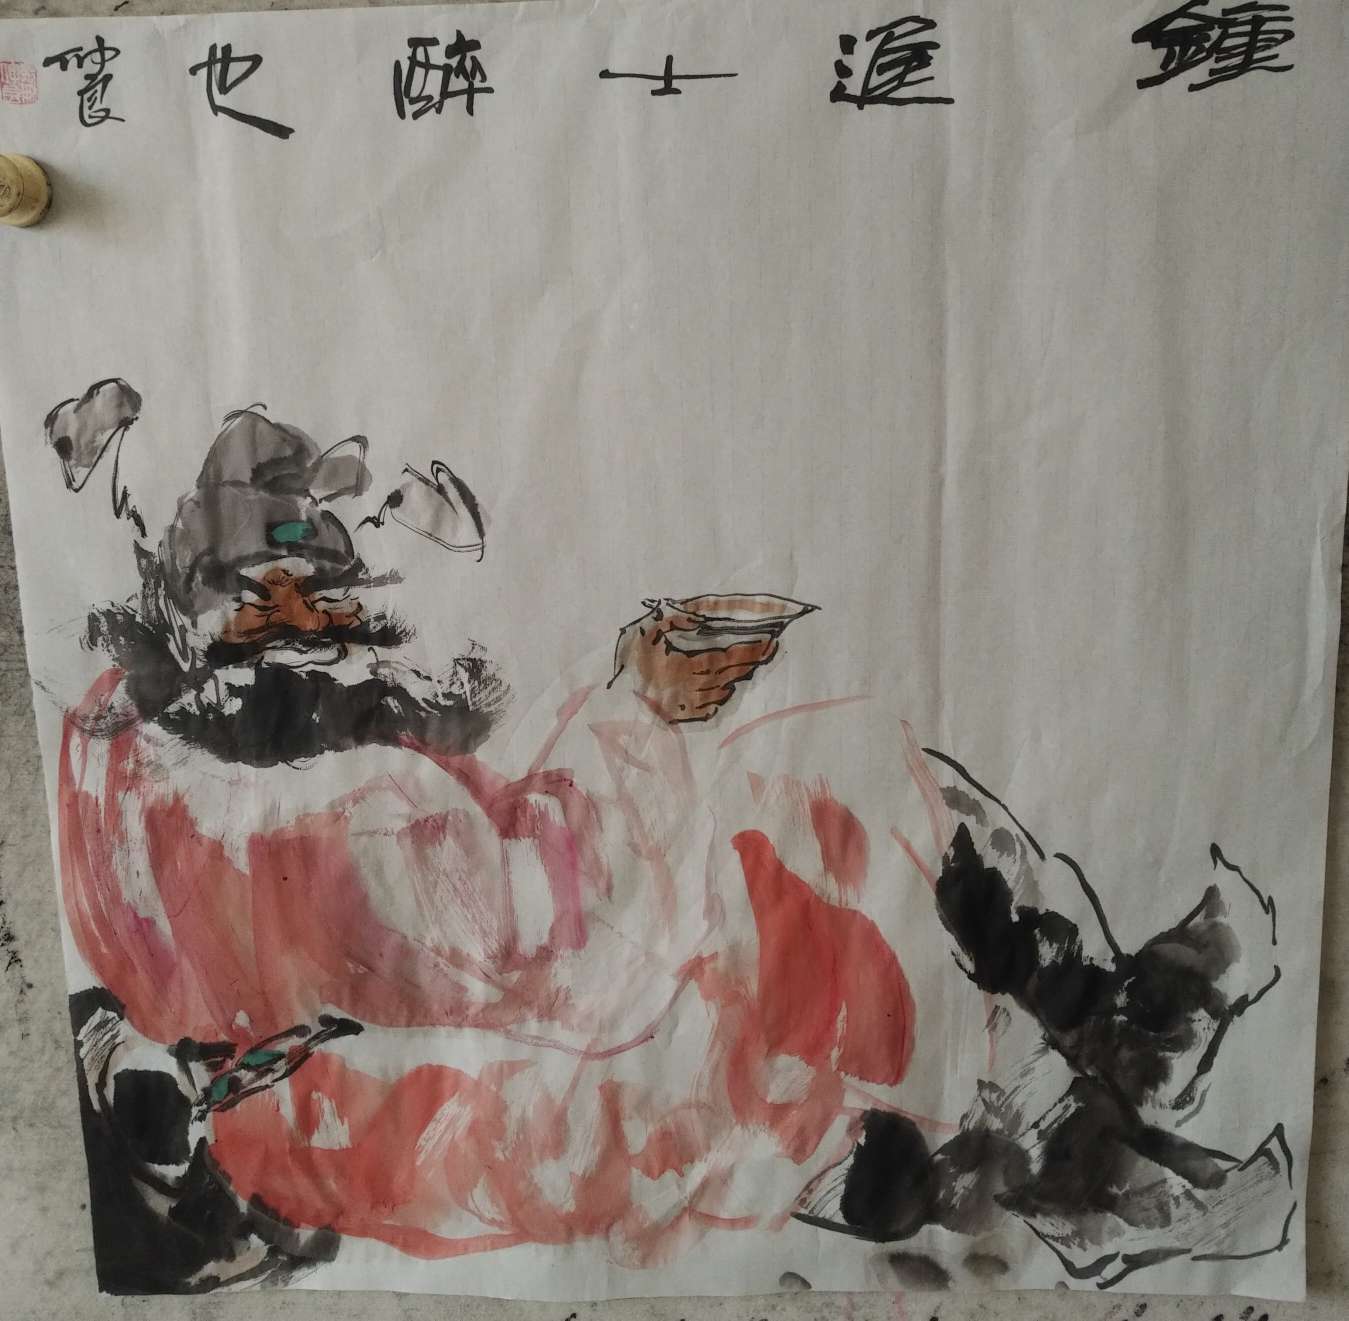 鍾進士醉也